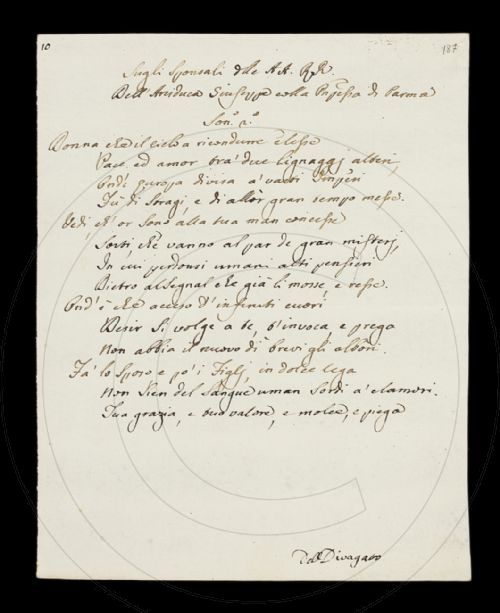 10
187
Sugli Sponsali delle AA. RR.
Dell'Arciduca Giuseppe colla Pnpessa di Parma
Son.o 2.o
Donna che il cielo a ricondurre elesse
Pace ed amor tra' due lignaggj alteri,
Ond' Europa divisa a' varj Imperi
Fù di stragi, e di allòr gran tempo messe.
Vedi, ch'or sono alla tua man concesse
Sorti, che vanno al par de gran misterj,
In cui perdonsi umani alti pensieri
Dietro al segnal che già li mosse, e resse.
Ond'è che acceso d'infiniti cuori
Desir si volge a te, t'invoca, e prega
Non abbia il nuovo dì brevi gli albòri.
Fà lo Sposo e po'i Figlj, in dolce lega
Non sien del Sangue uman sordi a' clamori.
Tua grazia, e tuo valore, e molce, e piega
Del Divagato